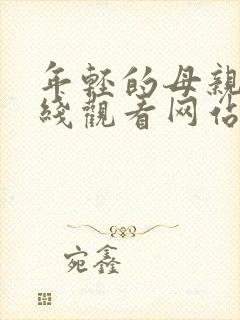 年轻的母亲
线觀看网佔
宛鑫